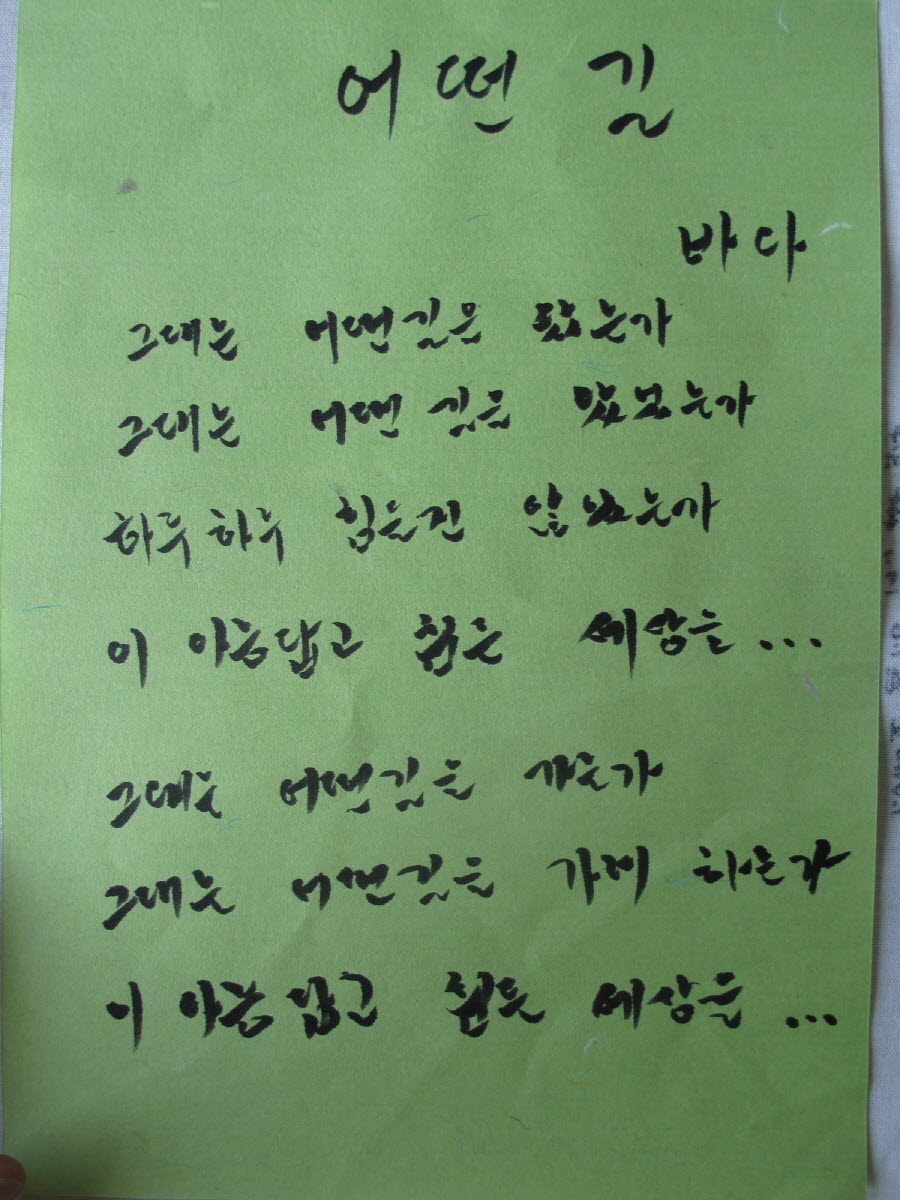 어떤 길
바다
그대는 어떤길은 탔는가
그대는 어떤 길을 맛보는가
하루하루 힘든진 않았는가
이 아름답고 험든 세상을...
그대는 어떤길을 가는가
그대는 어떤길을 가려 하는가
이 아름답고 힘든 세상을...